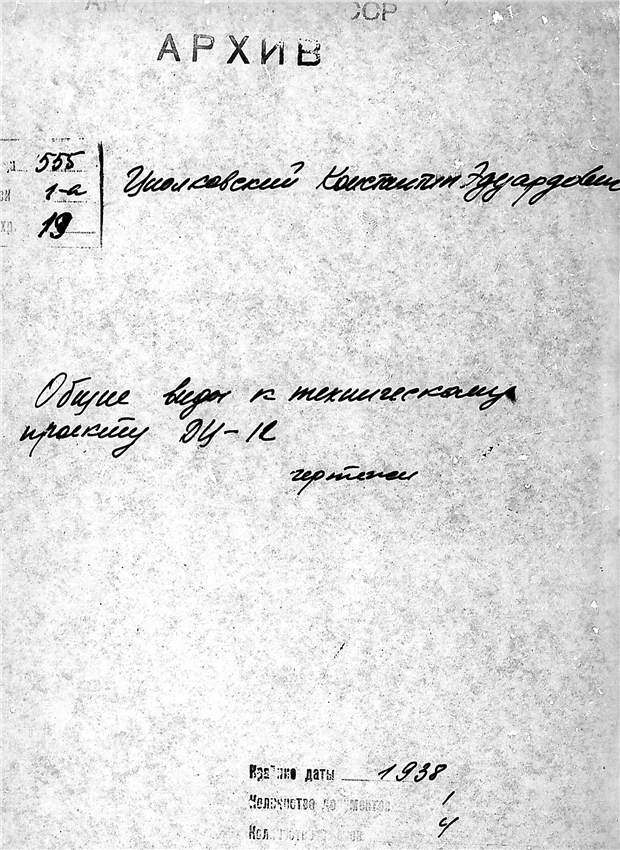 ССР
АРХИВ
555
1-а
хр. 19
Циолковский Константин Эдуардович
Общие виды к техническому
проекту ДЦ-1с
чертежи
Крайние даты 1938
Количество документов 1
4